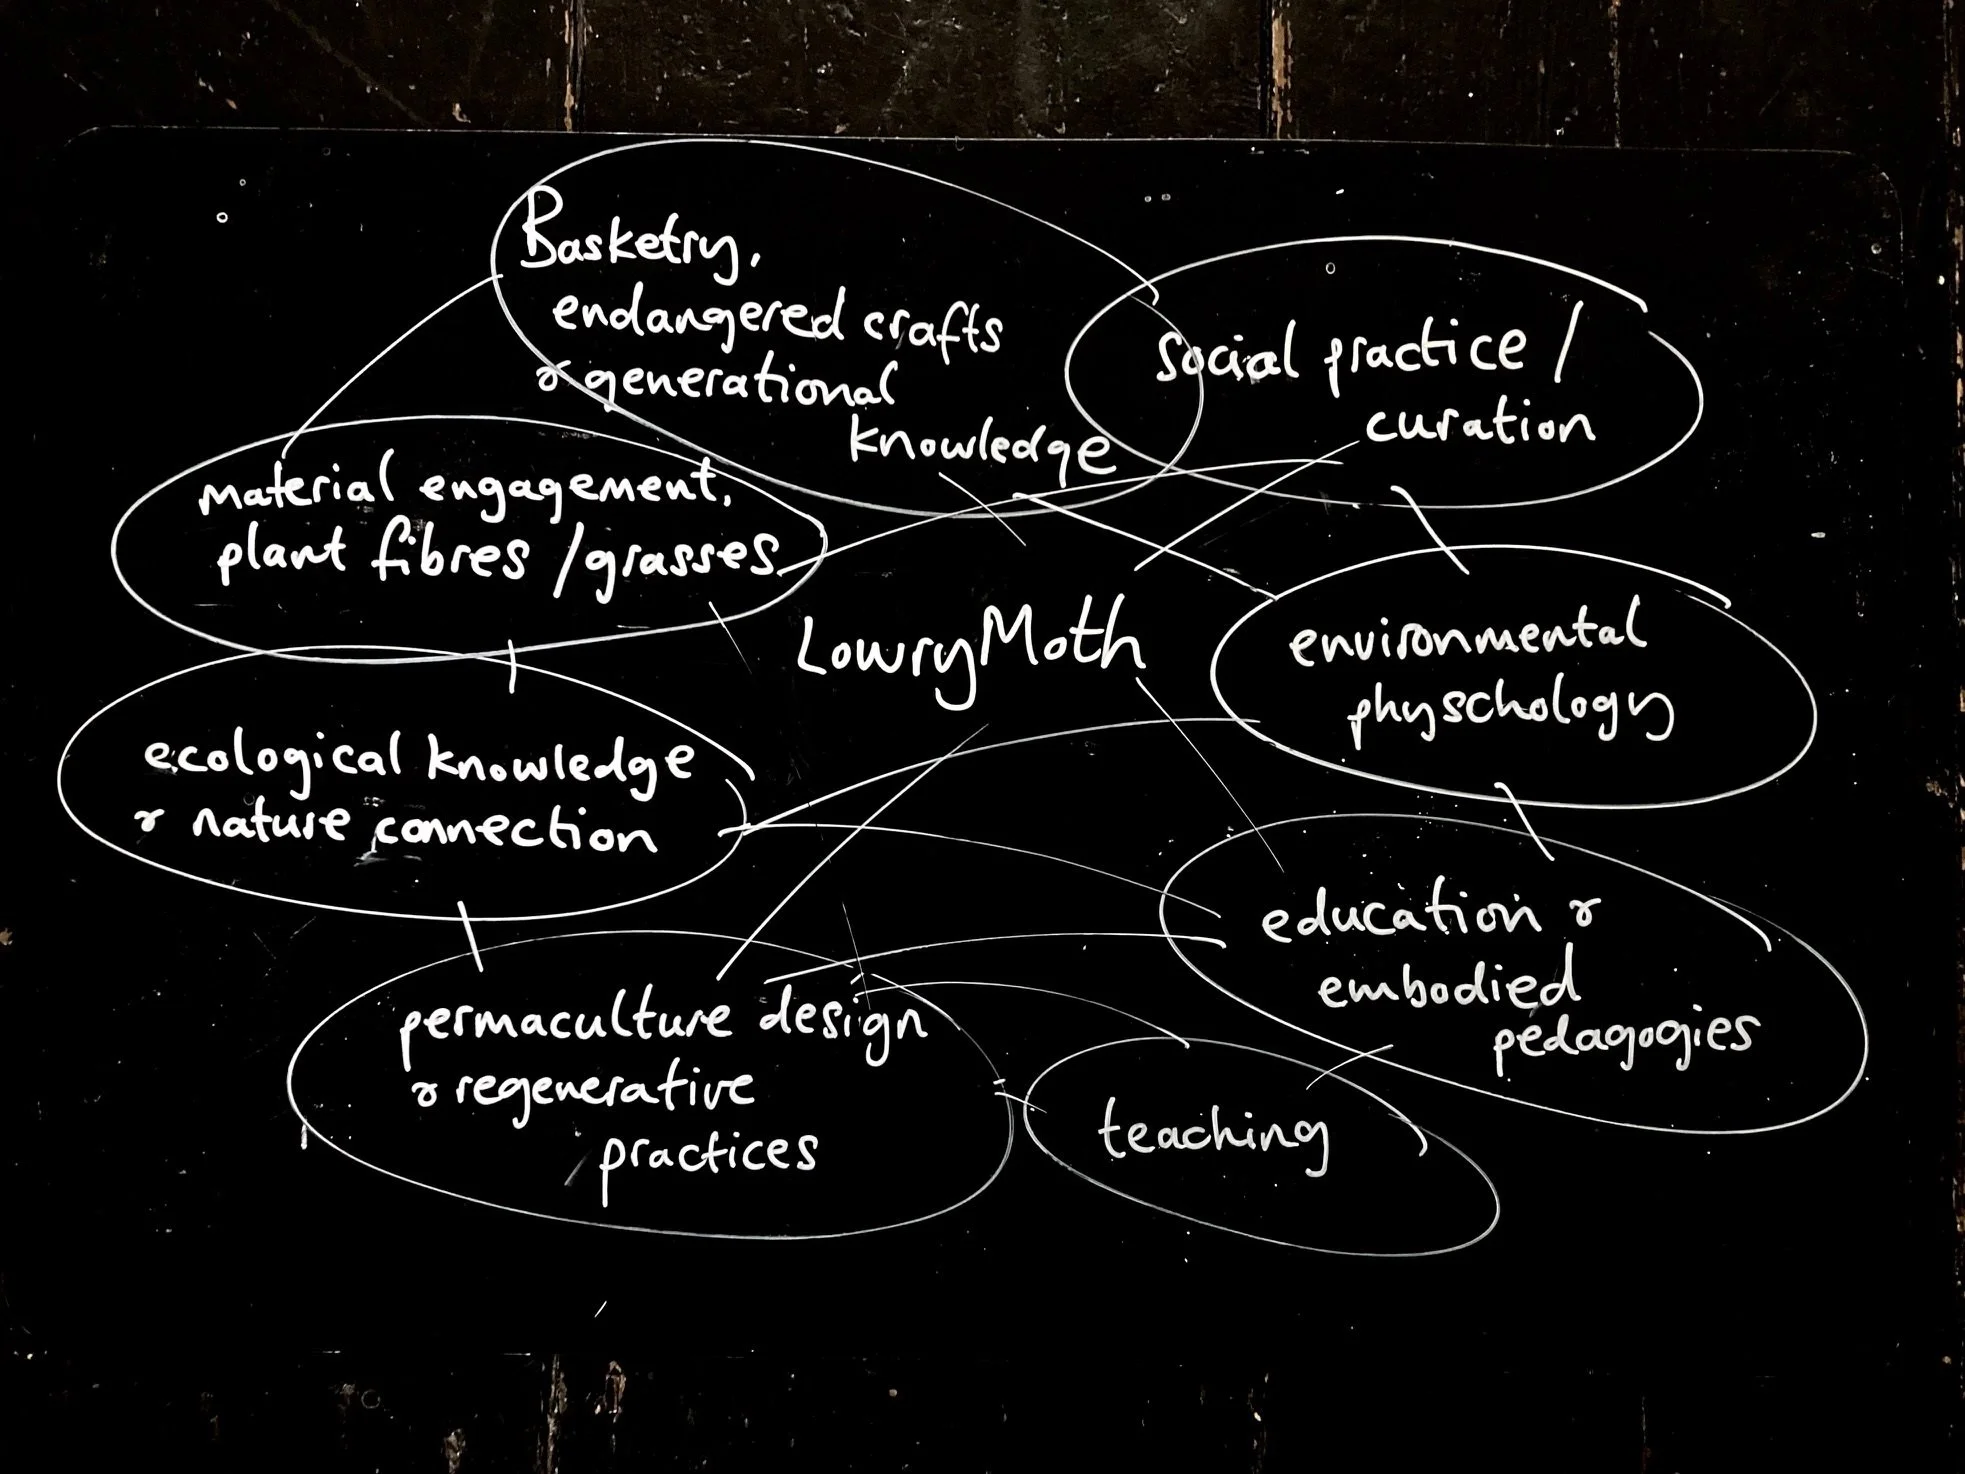 Basketry,
endangered crafts
& generational
knowledge
social practice /
curation
material engagement,
plant fibres / grasses
LowryMoth
environmental
physchology
ecological knowledge
& nature connection
education &
embodied
pedagogies
permaculture design
& regenerative
practices
teaching